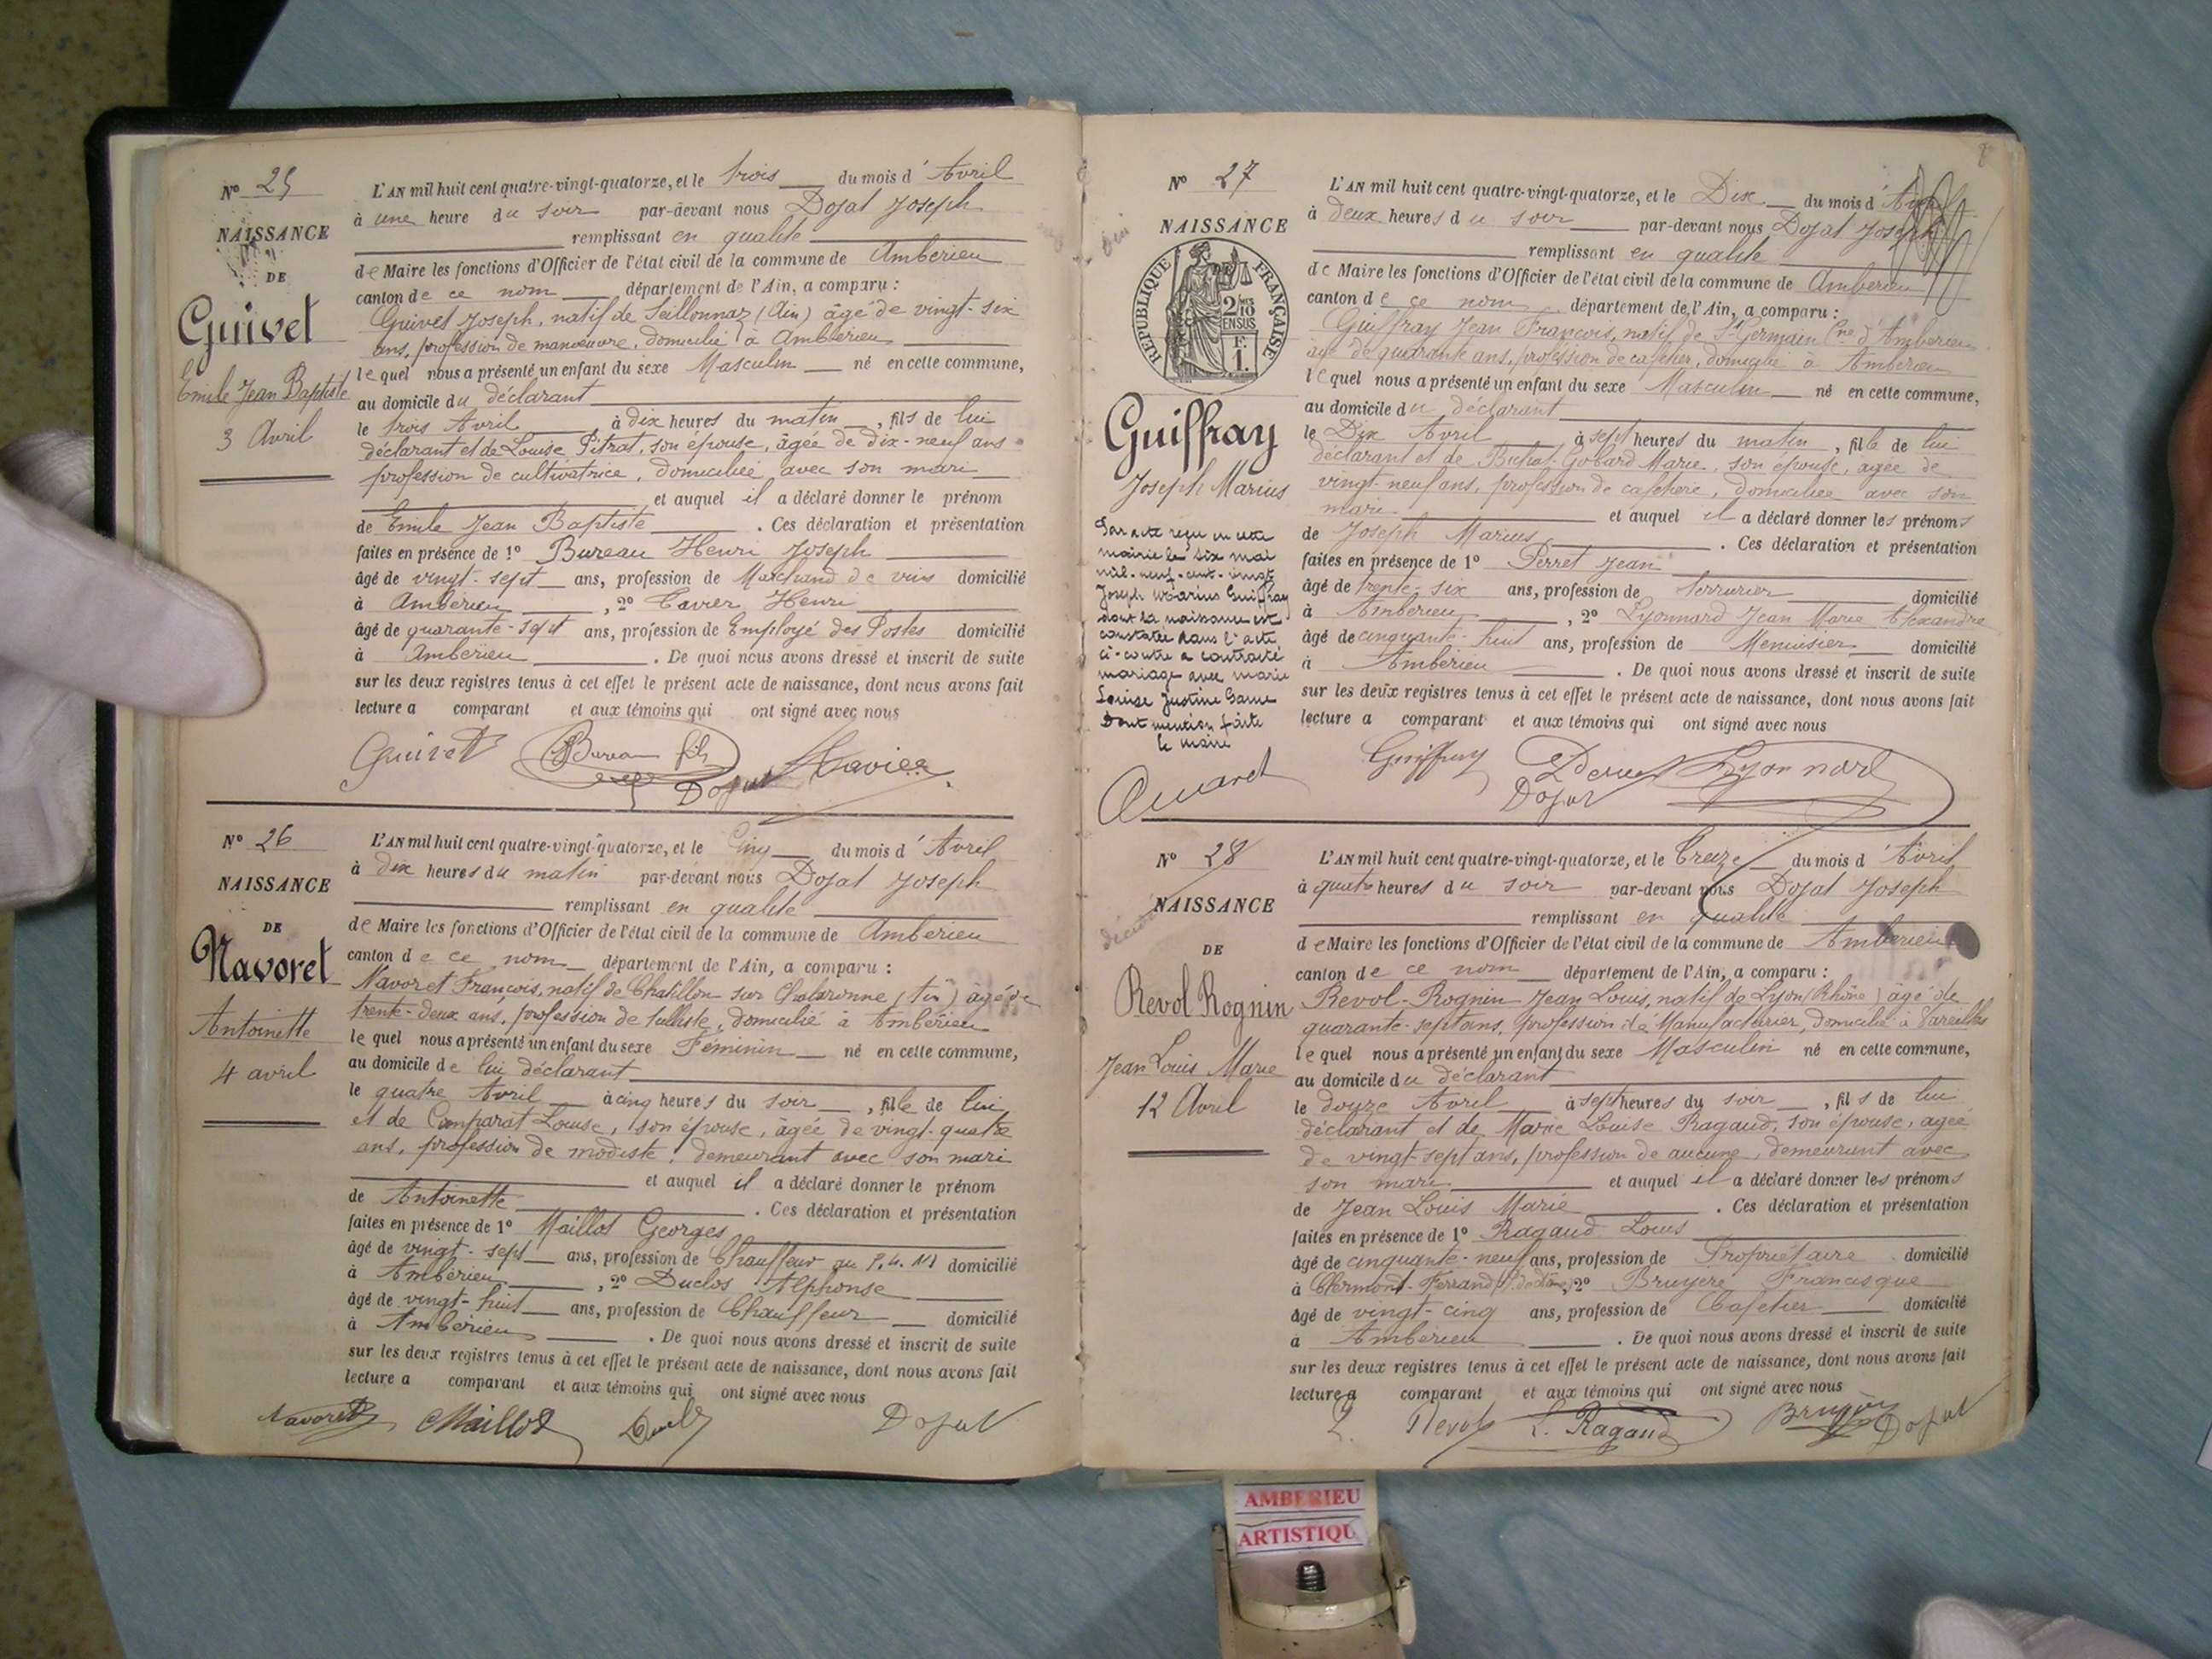 N° 25
NAISSANCE
DE
Guivet
Emile Jean Baptiste
3 Avril
L'AN mil huit cent quatre-vingt-quatorze, et le trois du mois d'Avril
à une heure du soir par-devant nous Dojat Joseph
remplissant en qualité
de Maire les fonctions d'Officier de l'état civil de la commune de Ambérieu
canton de ce nom département de l'Ain, a comparu :
Guivet Joseph, natif de Seillonnaz (Ain) âgé de vingt-six
ans, profession de manœuvre, domicilié à Ambérieu
lequel nous a présenté un enfant du sexe Masculin né en cette commune,
au domicile du déclarant
le trois Avril à dix heures du matin, fils de lui
déclarant et de Louise Pitrat, son épouse, âgée de dix-neuf ans
profession de cultivatrice, domiciliée avec son mari
et auquel il a déclaré donner le prénom
de Emile Jean Baptiste. Ces déclaration et présentation
faites en présence de 1° Bureau Henri Joseph
âgé de vingt-sept ans, profession de Marchand de vins domicilié
à Ambérieu, 2° Tavier Henri
âgé de quarante-sept ans, profession de Employé des Postes domicilié
à Ambérieu. De quoi nous avons dressé et inscrit de suite
sur les deux registres tenus à cet effet le présent acte de naissance, dont nous avons fait
lecture a comparant et aux témoins qui ont signé avec nous
Guivet Bureau fils Dojat
N° 26
NAISSANCE
DE
Navoret
Antoinette
4 avril
L'AN mil huit cent quatre-vingt-quatorze, et le Cinq du mois d'Avril
à dix heures du matin par-devant nous Dojat Joseph
remplissant en qualité
de Maire les fonctions d'Officier de l'état civil de la commune de Ambérieu
canton de ce nom département de l'Ain, a comparu :
Navoret François, natif de Chatillon sur Chalaronne (Ain) âgé de
trente-deux ans, profession de tulliste, domicilié à Ambérieu
lequel nous a présenté un enfant du sexe Féminin né en cette commune,
au domicile de lui déclarant
le quatre Avril à cinq heures du soir, fille de lui
et de Comparat Louise, son épouse, âgée de vingt-quatre
ans, profession de modiste, demeurant avec son mari
et auquel il a déclaré donner le prénom
de Antoinette. Ces déclaration et présentation
faites en présence de 1° Maillot Georges
âgé de vingt-sept ans, profession de Chauffeur au P.L.M domicilié
à Ambérieu, 2° Duclos Alphonse
âgé de vingt-huit ans, profession de Chauffeur domicilié
à Ambérieu. De quoi nous avons dressé et inscrit de suite
sur les deux registres tenus à cet effet le présent acte de naissance, dont nous avons fait
lecture a comparant et aux témoins qui ont signé avec nous
Navoret Maillot Dojat
N° 27
NAISSANCE
RÉPUBLIQUE FRANÇAISE
2/10 EN SUS
F. 1.
Guiffray
Joseph Marius
Par acte reçu en cette
mairie le six mai
mil-neuf-cent-vingt
Joseph Marius Guiffray
dont la naissance est
constatée dans l'acte
ci-contre a contracté
mariage avec marie
Louise Justine
Dont mention faite
le maire
L'AN mil huit cent quatre-vingt-quatorze, et le Dix du mois d'Avril
à deux heures du soir par-devant nous Dojat Joseph
remplissant en qualité
de Maire les fonctions d'Officier de l'état civil de la commune de Ambérieu
canton de ce nom département de l'Ain, a comparu :
Guiffray Jean François, natif de St Germain Cne d'Ambérieu
âgé de quarante ans, profession de cafetier, domicilié à Ambérieu
lequel nous a présenté un enfant du sexe Masculin né en cette commune,
au domicile du déclarant
le Dix Avril à sept heures du matin, fils de lui
déclarant et de Gobard Marie, son épouse, âgée de
vingt-neuf ans, profession de cafetière, domiciliée avec son
mari et auquel il a déclaré donner les prénoms
de Joseph Marius. Ces déclaration et présentation
faites en présence de 1° Perret Jean
âgé de trente-six ans, profession de Serrurier domicilié
à Ambérieu, 2° Lyonnard Jean Marie Alexandre
âgé de cinquante-huit ans, profession de Menuisier domicilié
à Ambérieu. De quoi nous avons dressé et inscrit de suite
sur les deux registres tenus à cet effet le présent acte de naissance, dont nous avons fait
lecture a comparant et aux témoins qui ont signé avec nous
Guiffray Lyonnard
Dojat
N° 28
NAISSANCE
DE
Revol Rognin
Jean Louis Marie
12 Avril
L'AN mil huit cent quatre-vingt-quatorze, et le Treize du mois d'Avril
à quatre heures du soir par-devant nous Dojat Joseph
remplissant en qualité
de Maire les fonctions d'Officier de l'état civil de la commune de Ambérieu
canton de ce nom département de l'Ain, a comparu :
Revol-Rognin Jean Louis, natif de Lyon (Rhône) âgé de
quarante-sept ans, profession de Manufacturier, domicilié à Vareilles
lequel nous a présenté un enfant du sexe Masculin né en cette commune,
au domicile du déclarant
le douze Avril à sept heures du soir, fils de lui
déclarant et de Marie Louise Ragaud, son épouse, âgée
de vingt-sept ans, profession de aucune, demeurant avec
son mari et auquel il a déclaré donner les prénoms
de Jean Louis Marie. Ces déclaration et présentation
faites en présence de 1° Ragaud Louis
âgé de cinquante-neuf ans, profession de Propriétaire domicilié
à Clermont-Ferrand, 2° Bruyère Francisque
âgé de vingt-cinq ans, profession de Cafetier domicilié
à Ambérieu. De quoi nous avons dressé et inscrit de suite
sur les deux registres tenus à cet effet le présent acte de naissance, dont nous avons fait
lecture a comparant et aux témoins qui ont signé avec nous
L. Revol L. Ragaud Dojat
AMBERIEU
ARTISTIQU